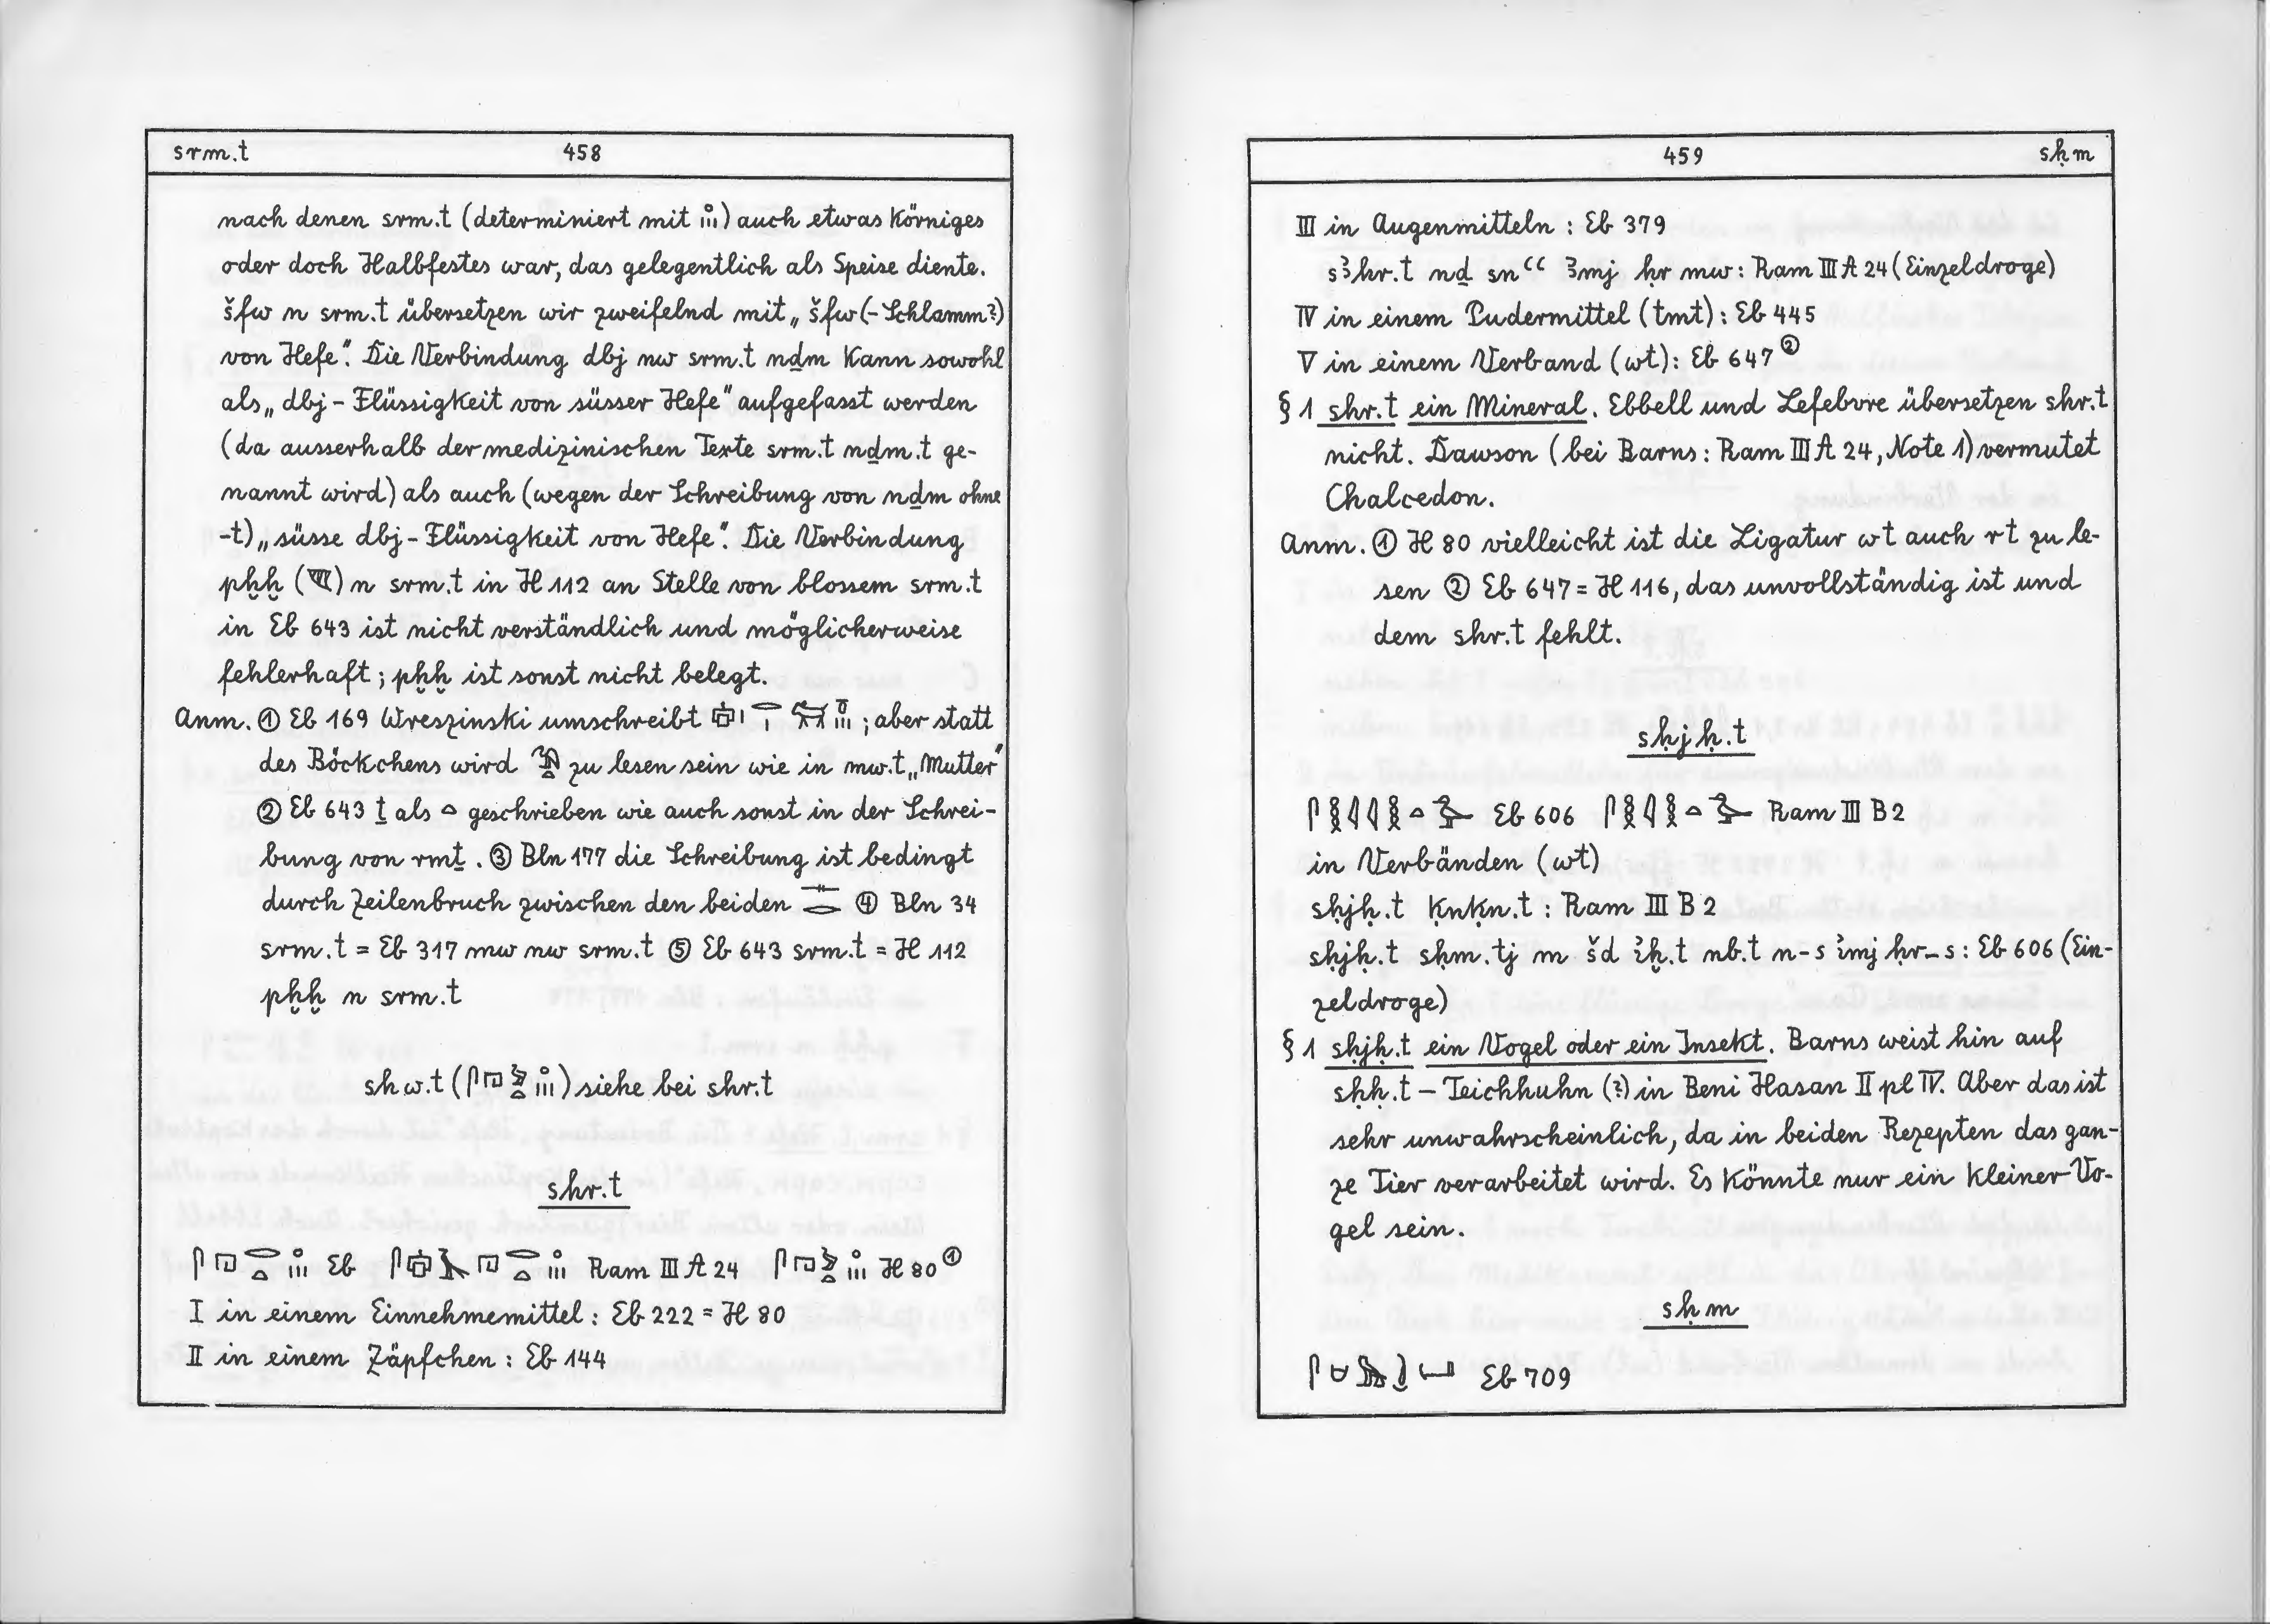 srm.t 458
nach denen srm.t (determiniert mit 𓈒𓏥) auch etwas Körniges
oder doch Halbfestes war, das gelegentlich als Speise diente.
šfw n srm.t übersetzen wir zweifelnd mit „šfw (-Schlamm?)
von Hefe". Die Verbindung dbj nw srm.t nḏm kann sowohl
als „dbj-Flüssigkeit von süsser Hefe" aufgefasst werden
(da ausserhalb der medizinischen Texte srm.t nḏm.t ge-
nannt wird) als auch (wegen der Schreibung von nḏm ohne
-t) „süsse dbj-Flüssigkeit von Hefe". Die Verbindung
pḫḫ () n srm.t in H 112 an Stelle von blossem srm.t
in Eb 643 ist nicht verständlich und möglicherweise
fehlerhaft; pḫḫ ist sonst nicht belegt.
Anm. ① Eb 169 Wreszinski umschreibt ; aber statt
des Böckchens wird zu lesen sein wie in mw.t „Mutter"
② Eb 643 ṯ als 𓏏 geschrieben wie auch sonst in der Schrei-
bung von rmṯ. ③ Bln 177 die Schreibung ist bedingt
durch Zeilenbruch zwischen den beiden 𓊃𓂋 ④ Bln 34
srm.t = Eb 317 mw nw srm.t ⑤ Eb 643 srm.t = H 112
pḫḫ n srm.t
shw.t (𓋴𓉔𓅱𓏏𓈒𓏥) siehe bei shr.t
shr.t
𓋴𓉔𓂋𓏏𓈒𓏥 Eb 𓋴𓉔𓂋𓏏𓈒𓏥 Ram III A 24 𓋴𓉔𓅱𓏏𓈒𓏥 H 80 ①
I in einem Einnehmemittel: Eb 222 = H 80
II in einem Zäpfchen: Eb 144
459 sḥm
III in Augenmitteln: Eb 379
sꜣhr.t nḏ snꜥꜥ ꜣmj ḥr mw: Ram III A 24 (Einzeldroge)
IV in einem Pudermittel (tmt): Eb 445
V in einem Verband (wt): Eb 647 ②
§ 1 shr.t ein Mineral. Ebbell und Lefebvre übersetzen shr.t
nicht. Dawson (bei Barns: Ram III A 24, Note 1) vermutet
Chalcedon.
Anm. ① H 80 vielleicht ist die Ligatur wt auch rt zu le-
sen ② Eb 647 = H 116, das unvollständig ist und
dem shr.t fehlt.
sḥjḥ.t
𓋴𓎛𓇋𓇋𓎛𓏏𓅯 Eb 606 𓋴𓎛𓇋𓎛𓏏𓅯 Ram III B 2
in Verbänden (wt)
sḥjḥ.t ḳnḳn.t: Ram III B 2
sḥjḥ.t sḥm.tj m šd ỉḫ.t nb.t n-s ỉmj ḥr-s: Eb 606 (Ein-
zeldroge)
§ 1 sḥjḥ.t ein Vogel oder ein Insekt. Barns weist hin auf
sḥḥ.t – Teichhuhn (?) in Beni Hasan II pl IV. Aber das ist
sehr unwahrscheinlich, da in beiden Rezepten das gan-
ze Tier verarbeitet wird. Es könnte nur ein kleiner Vo-
gel sein.
sḥm
Eb 709